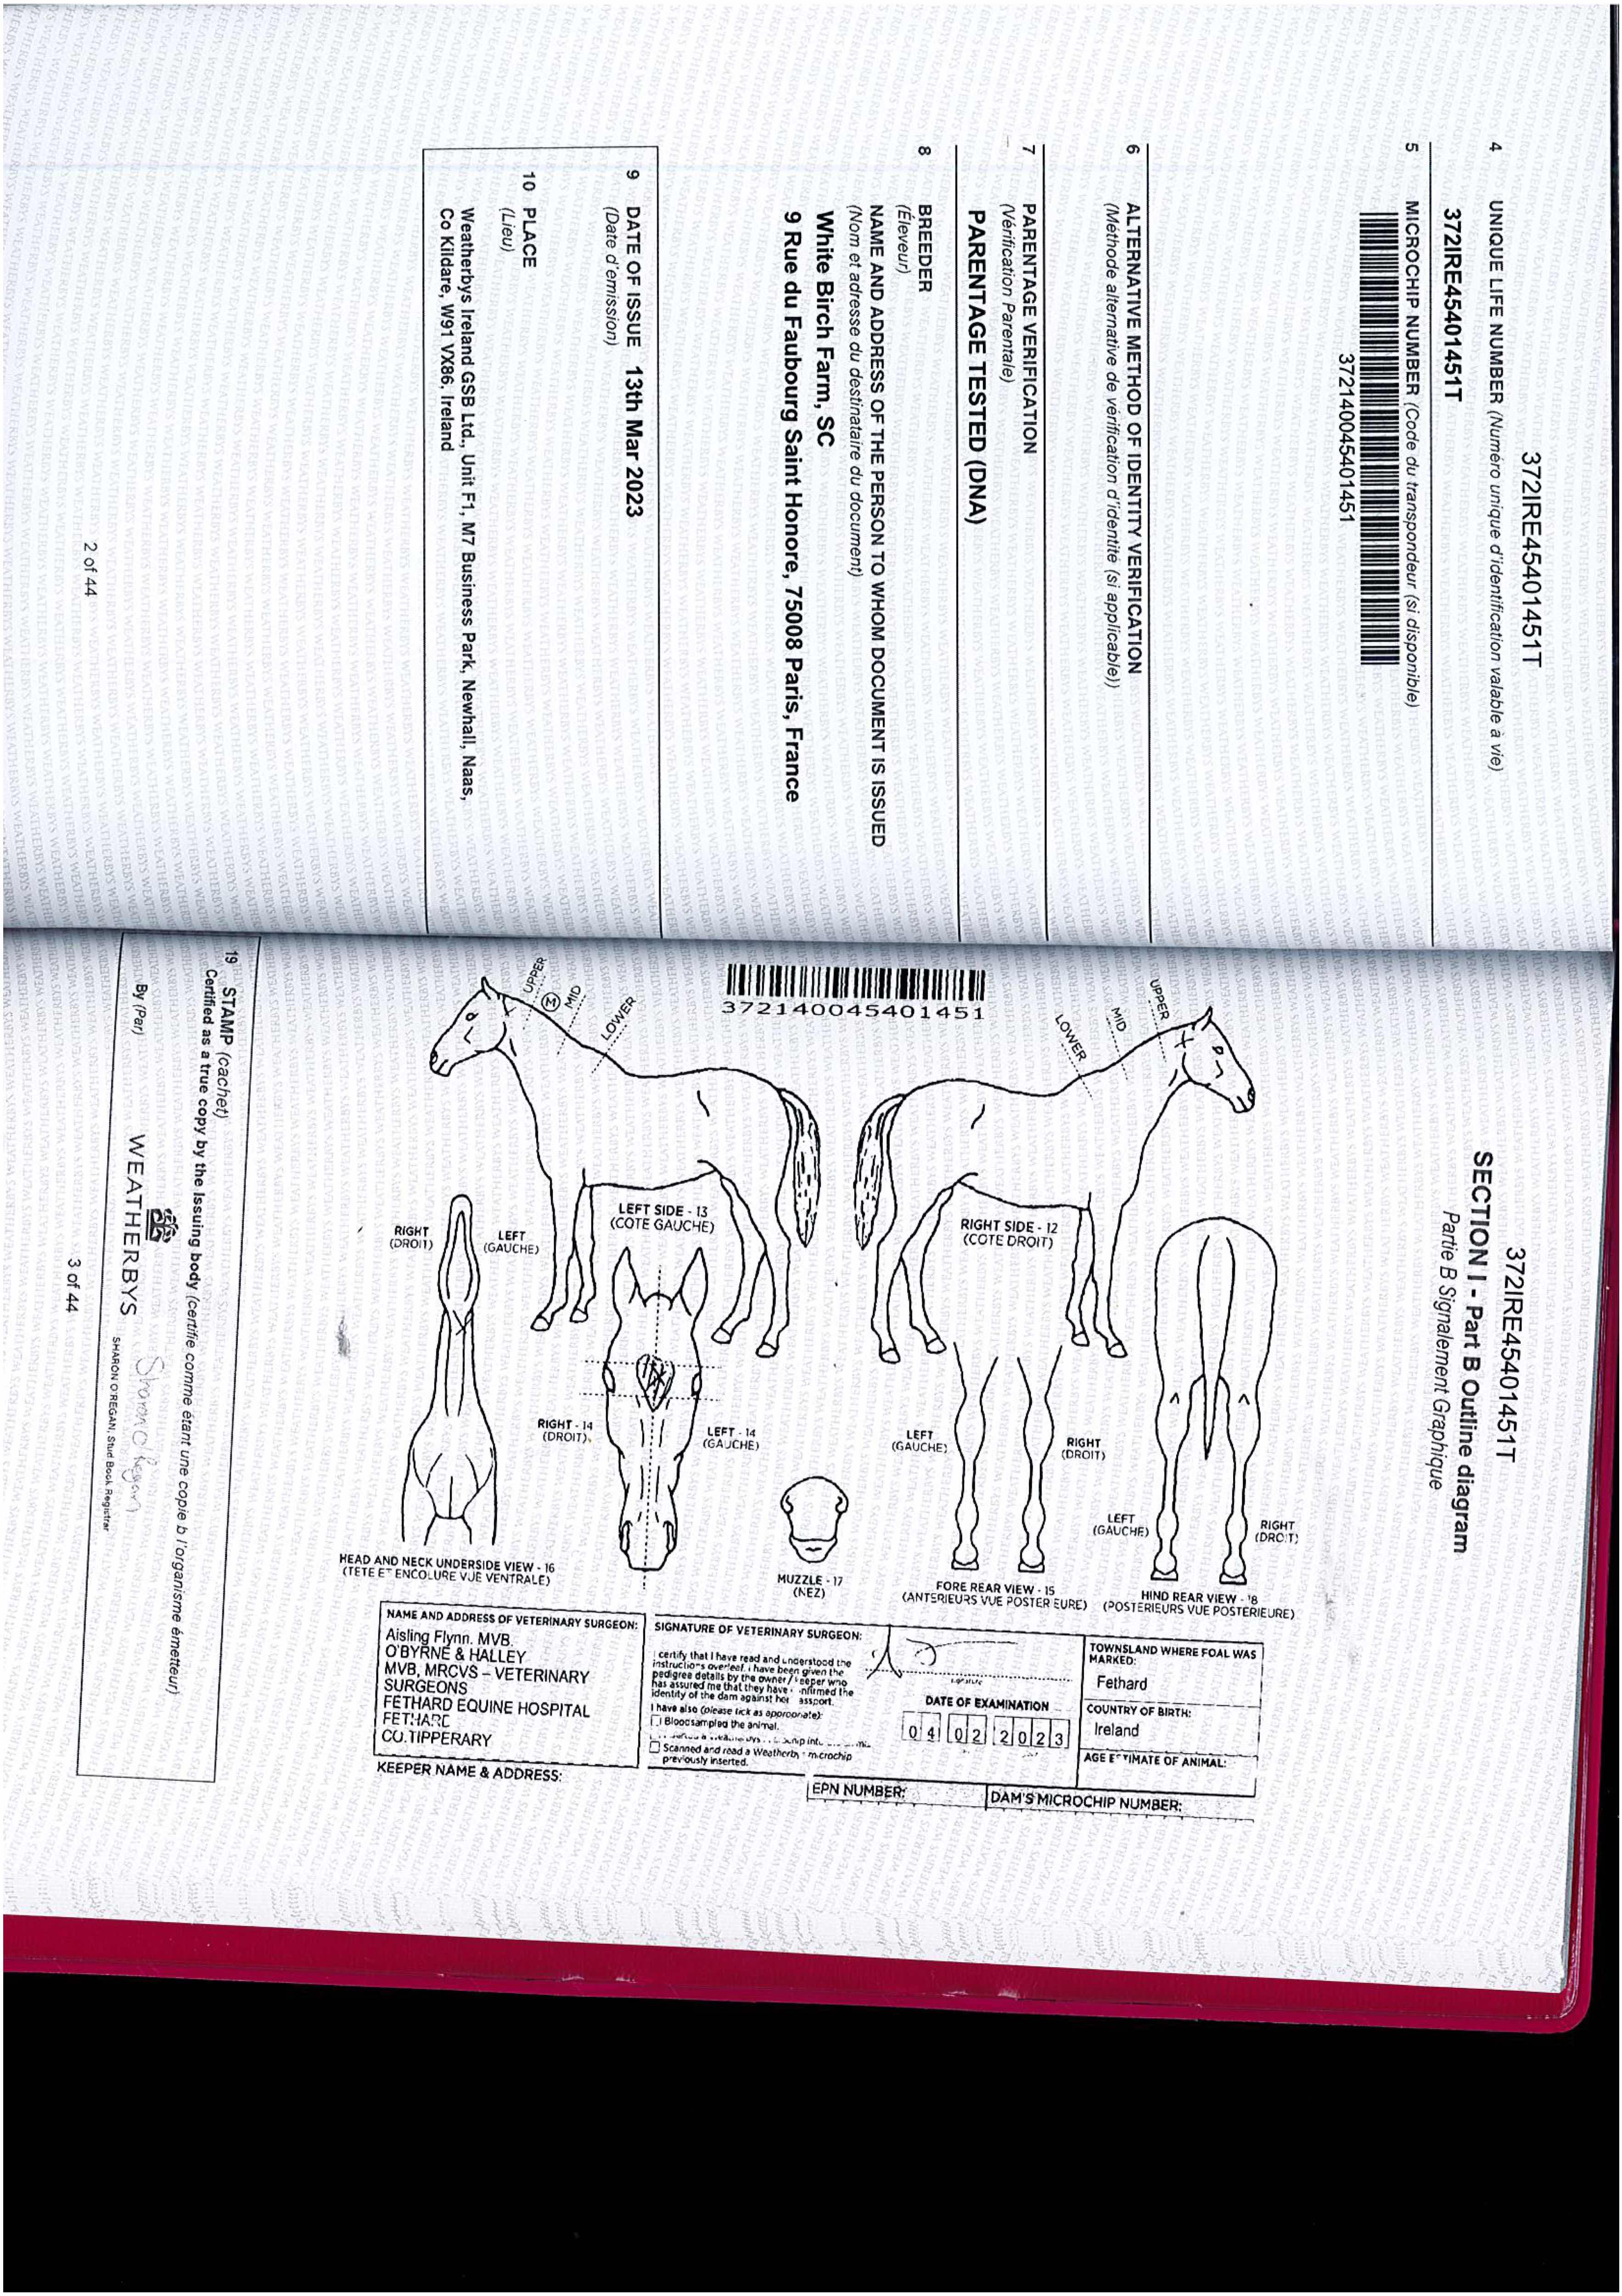 372IRE45401451T
4 UNIQUE LIFE NUMBER (Numéro unique d'identification valable à vie)
372IRE45401451T
5 MICROCHIP NUMBER (Code du transpondeur (si disponible)
372140045401451
6 ALTERNATIVE METHOD OF IDENTITY VERIFICATION
(Méthode alternative de vérification d'identité (si applicable))
7 PARENTAGE VERIFICATION
(Vérification Parentale)
PARENTAGE TESTED (DNA)
8 BREEDER
(Éleveur)
NAME AND ADDRESS OF THE PERSON TO WHOM DOCUMENT IS ISSUED
(Nom et adresse du destinataire du document)
White Birch Farm, SC
9 Rue du Faubourg Saint Honore, 75008 Paris, France
9 DATE OF ISSUE 13th Mar 2023
(Date d'emission)
10 PLACE
(Lieu)
Weatherbys Ireland GSB Ltd., Unit F1, M7 Business Park, Newhall, Naas,
Co Kildare, W91 VX86, Ireland
2 of 44
372IRE45401451T
SECTION I - Part B Outline diagram
Partie B Signalement Graphique
UPPER
M
MID
LOWER
372140045401451
LOWER
MID
UPPER
LEFT SIDE - 13
(COTE GAUCHE)
RIGHT SIDE - 12
(COTE DROIT)
RIGHT
(DROIT)
LEFT
(GAUCHE)
RIGHT - 14
(DROIT)
LEFT - 14
(GAUCHE)
LEFT
(GAUCHE)
RIGHT
(DROIT)
LEFT
(GAUCHE)
RIGHT
(DROIT)
HEAD AND NECK UNDERSIDE VIEW - 16
(TETE ET ENCOLURE VUE VENTRALE)
MUZZLE - 17
(NEZ)
FORE REAR VIEW - 15
(ANTERIEURS VUE POSTER EURE)
HIND REAR VIEW - 18
(POSTERIEURS VUE POSTERIEURE)
NAME AND ADDRESS OF VETERINARY SURGEON:
Aisling Flynn. MVB.
O'BYRNE & HALLEY
MVB, MRCVS – VETERINARY
SURGEONS
FETHARD EQUINE HOSPITAL
FETHARD
CO.TIPPERARY
KEEPER NAME & ADDRESS:
SIGNATURE OF VETERINARY SURGEON:
I certify that I have read and understood the
instructions overleaf. I have been given the
pedigree details by the owner / keeper who
has assured me that they have confirmed the
identity of the dam against her passport.
I have also (please tick as appropriate):
Bloodsampled the animal.
Scanned and read a Weatherbys microchip
previously inserted.
signature
DATE OF EXAMINATION
04 02 2023
TOWNSLAND WHERE FOAL WAS
MARKED:
Fethard
COUNTRY OF BIRTH:
Ireland
AGE ESTIMATE OF ANIMAL:
EPN NUMBER:
DAM'S MICROCHIP NUMBER:
19 STAMP (cachet)
Certified as a true copy by the Issuing body (certifie comme étant une copie b l'organisme émetteur)
By (Par)
WEATHERBYS
Sharon O'Regan
SHARON O'REGAN, Stud Book Registrar
3 of 44